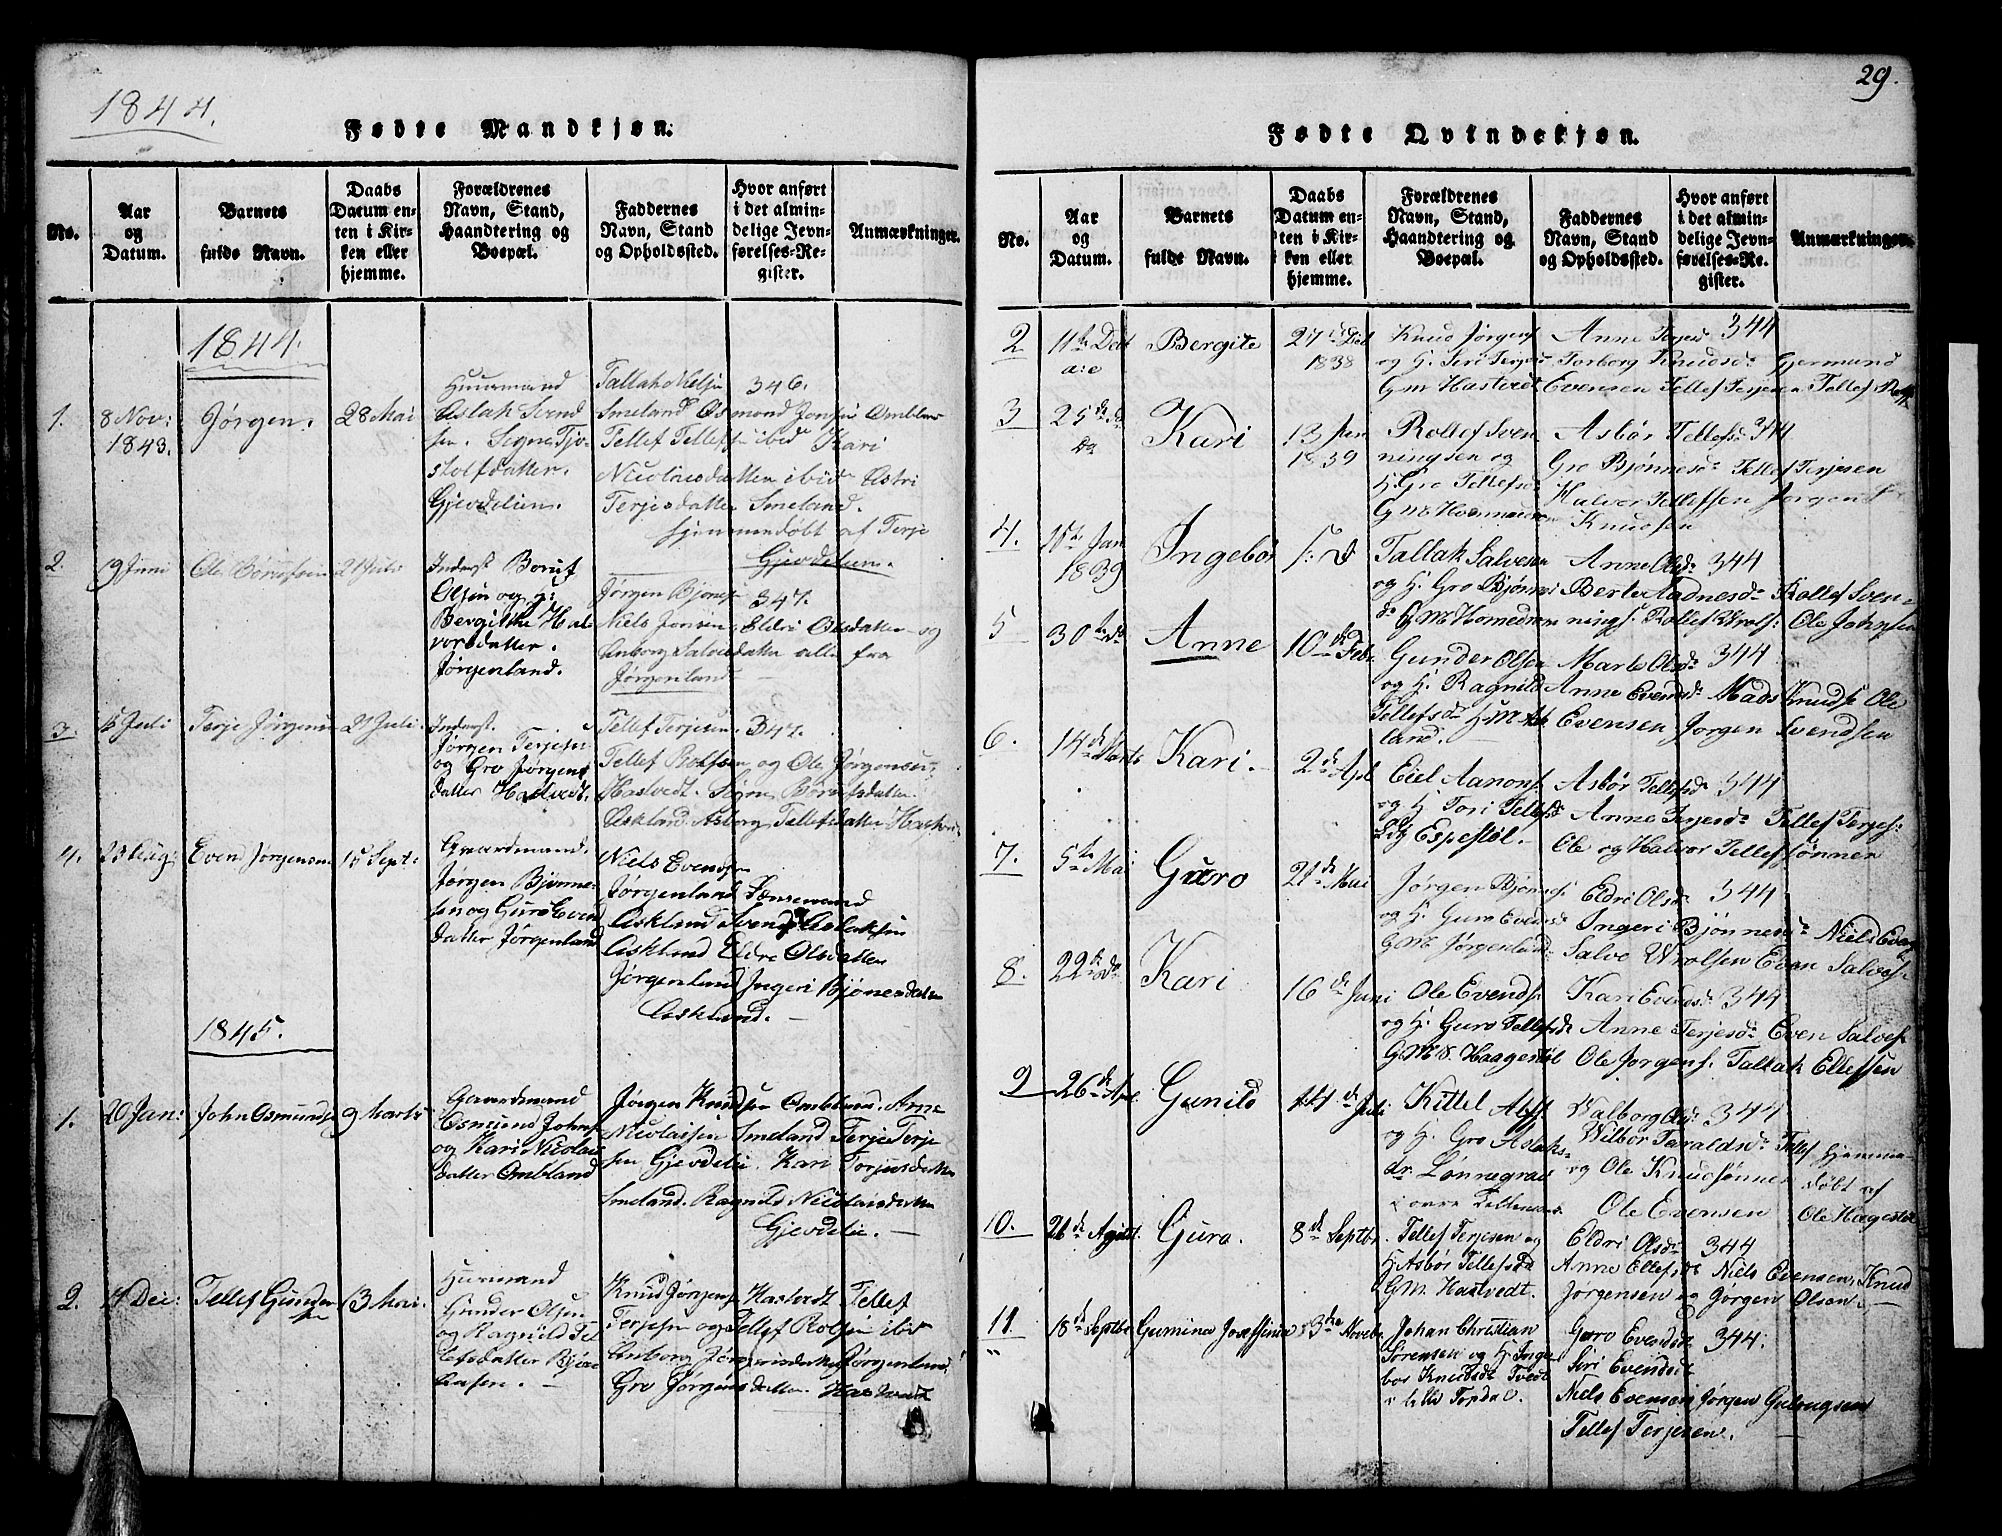 1844.
Fødte Mandkjøn.
No.
Aar
og
Datum.
Barnets
fulde Navn.
Daabs
Datum en-
ten i Kir-
ken eller
hjemme.
Forældrenes
Navn, Stand,
Haandtering og
Boepæl.
Faddernes
Navn, Stand
og Opholdssted.
Hvor anført
i det almin-
delige Jevn-
førelses-Re-
gister.
Anmærkninger.
1844.
1.
8 Nov:
1843.
Jørgen.
28 Mai
Huusmand
Aslak Svend
sen. Signe Tjo-
stolfsdatter.
Gjevdelien.
Tallak Nielsen 346.
Smeland Osmond Jonsen Ombland
Tellef Tellefsen ibid Kari
Nicolaisdatter ibid Astri
Terjesdatter Smeland.
hjemmedøbt af Terje
Gjevdelien.
2.
9 Juni
Ole Børufsen
21 Juli
Inderst Boruf
Olsen og
Bergitthe Hal
vorsdatter.
Jørgenland.
Jørgen Bjønes 347.
Niels Jensen. Eldri Olsdatter og
Anborg Salvesdatter alle fra
Jørgenland
3.
15 Juli
Terje Jørgensen
21 Juli.
Inderst.
Jørgen Terjesen
og Gro Jørgens
datter Hastvedt.
Tellef Terjesen. 347.
Tellef Rolfsen og Ole Jørgensen
Hastvedt. Signe Børufsdatter
Askland. Asborg Tellefsdatter
4.
23 Aug:
Even Jørgensen
15 Sept.
Gaardmand.
Jørgen Bjønne-
sen og Guro Even
datter Jørgenland
Niels Evensen
Jørgenland Lensmand
Askland Svend Aslaksen
Askland Eldre Olsdatter
Jørgenland Ingeri Bjønesdatter
Askland.
1845.
1.
20 Jan:
John Osmundsen
9 Marts
Gaardmand
Osmund Johns
og Kari Nicolai
datter Ombland
Jørgen Knudsen Ombland. Arne
Nicolaisen Smeland Terje Terje
sen Gjevdelie. Kari Torjusdatter
Smeland. Ragnild Nicolaisdatter
Gjevdelie.
2.
14 Dec:
Tellef Gunder
sen
13 Mai.
Huusmand
Gunder Olsen
og Ragnild Tel
lefsdatter
Knud Jørgensen Hastvedt Tellef
Terjesen og Tellef Rolsen ibid
Anborg Jørgensdatter Jørgenland
Gro Jørgensdatter. Hastvedt
29.
Fødte Qvindekjøn.
No.
Aar
og
Datum.
Barnets
fulde Navn.
Daabs
Datum en-
ten i Kir-
ken eller
hjemme.
Forældrenes
Navn, Stand,
Haandtering og
Boepæl.
Faddernes
Navn, Stand
og Opholdssted.
Hvor anført
i det almin-
delige Jevn-
førelses-Re-
gister.
Anmærkninger.
2
11te Dec
a: c
Bergite
27de Dec
1838
Knud Jørgens
og H. Siri Terjesd
Gm Hastvedt
Anne Terjesd. 344
Torborg Knudsd. Gjermund
Evensen Tellef Terjesen Tellef
3
25de Do
Do
Kari
13 Jan
1839
Rollef Sven
ningsen og
H. Gro Tellefsd.
Asbør Tellefsd. 344
Gro Bjønnesd. Tellef Terjesen
Halvor Tellefsen Jørgen
Knudsen
4.
15te Jan
1839
Ingebør
Tallak Salvesen
og H. Gro Bjønnes
d. Gm Homedren
Anne Olsd. 344
Berte Aadnesd. Rollef Sven-
nings. Rollef Wrols. Ole Johnsen
5
30te do
Anne
10de Febr
Gunder Olsen
og H. Ragnild
Tellefsd.
land.
Marte Olsd. 344
Anne Evensd. Mads Knuds. Ole
Evensen Jørgen Svendsen
6.
14de Marts
Kari.
2de Apl
Eiel Aanons.
og H. Tori Tellefsd
Espestøl.
Asbør Tellefsd. 344
Anne Terjesd. Tellef Terjes:
Ole og Halvor Tellefsønner
7.
5te Mai
Guro
21de Mai
Jørgen Bjønnes.
og H. Guro Evensd.
GM. Jørgenland
Eldri Olsd. 344
Ingeri Bjønnesd. Niels Evens
Salve Wrolsen Even Salves.
8.
22de do
Kari
16de Juni
Ole Evends.
og H. Guro Tellefsd.
Haagestøl
Kari Evends. 344
Anne Terjesd. Even Salves.
Ole Jørgens. Tallak Ellefsen
9
26de Apl.
Gunild
14de Juli
Kittel Alfs.
og H. Gro Aslaks-
dr. Lønnegrav
i øvre
Valborg Olsd. 344
Wilbør Taraldsd. Tellef
og Ole Knudsønner
Ole Evensen
Hjemme-
døbt af
Ole Hagestøl
10.
21de August
Guro.
8de Septbr.
Tellef Terjesen og
H. Asbør Tellefsd.
GM. Hastvedt.
Eldri Olsd. 344
Anne Ellefsd. Niels Evensen, Knud
Jørgensen og Jørgen Olsen.
11
"
18de Septbr
Gumina Josephine
3die Novebr.
Johan Christian
Sørensen og H. Inge
bor Knudsd. Tvedt
i lille Topdal.
Guro Evensdt. 344.
Siri Evensdt.
Niels Evensen Jørgen
Tellef Terjesen.